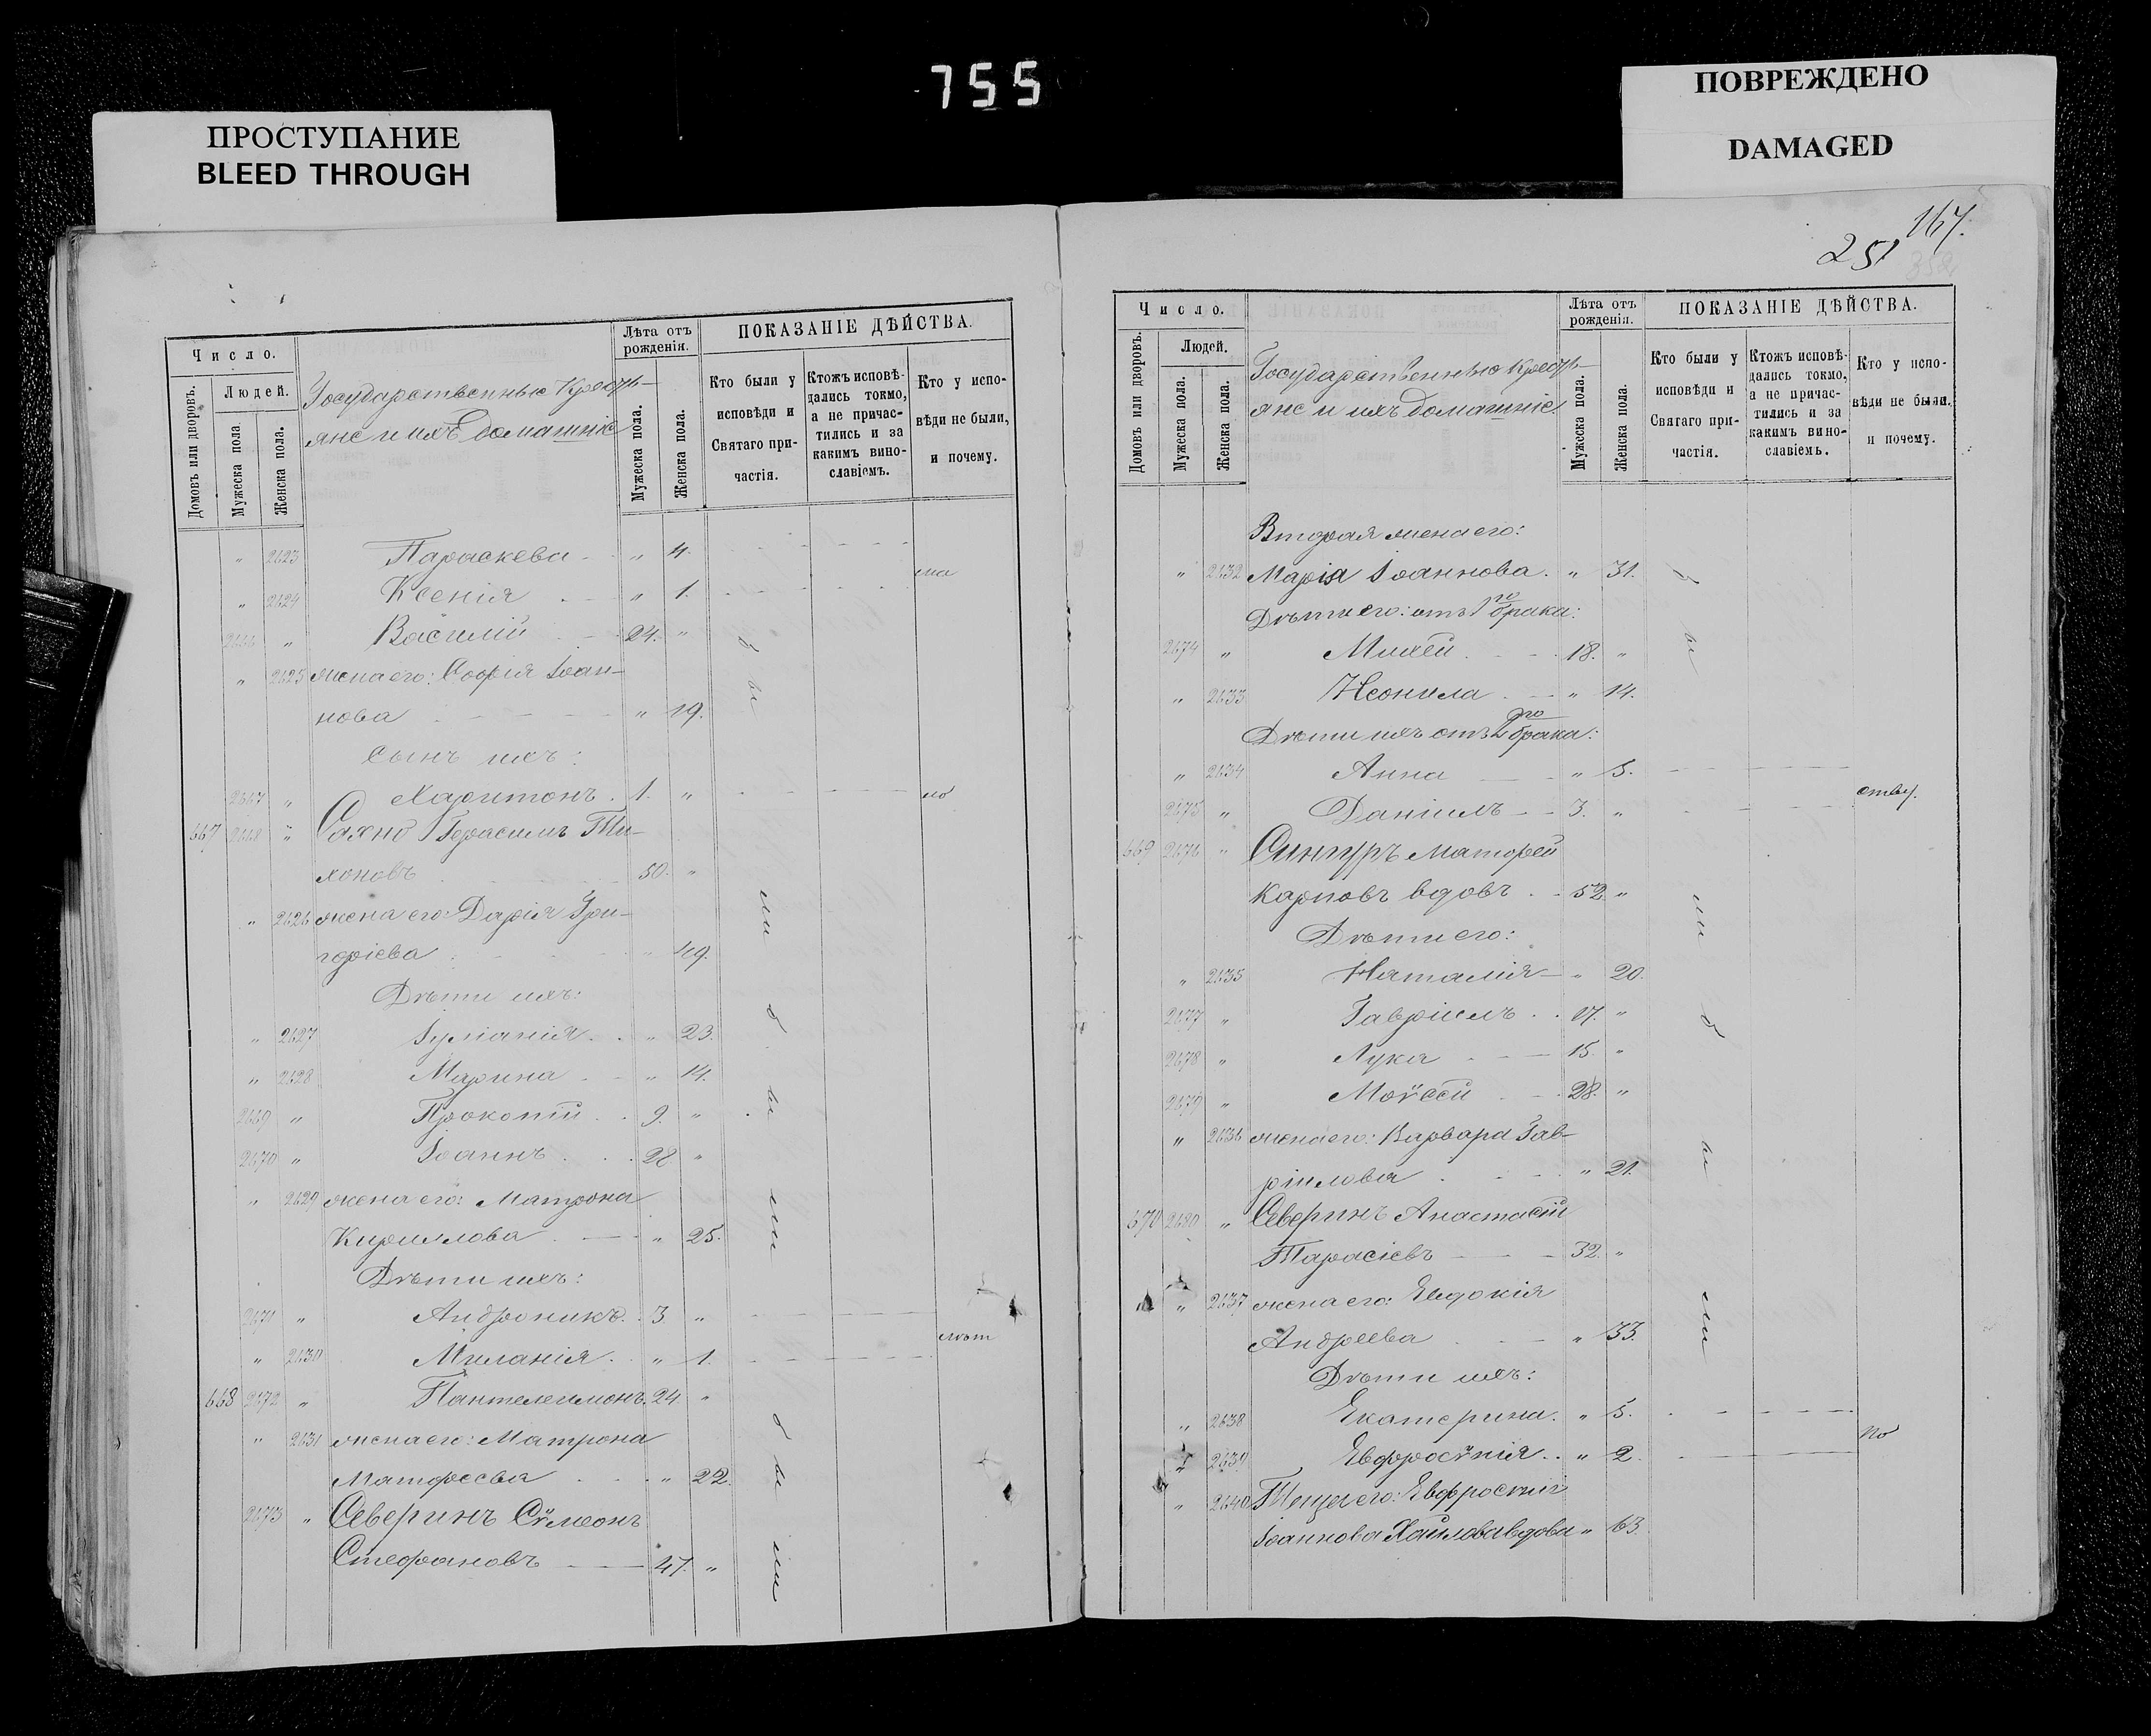 755
ПРОСТУПАНИЕ
BLEED THROUGH
ПОВРЕЖДЕНО
DAMAGED
Число.
Домовъ или дворовъ.
Людей.
Мужеска пола.
Женска пола.
Государственные Кресть-
яне и ихъ домашніе
Лѣта отъ рожденія.
Мужеска пола.
Женска пола.
ПОКАЗАНІЕ ДѢЙСТВА.
Кто были у исповѣди и Святаго при-частія.
Ктожъ исповѣ-дались токмо, а не причас-тились и за какимъ вино-славіемъ.
Кто у испо-вѣди не были, и почему.
" 2623 Параскева " 4.
" 2624 Ксенія " 1. ма
2666 " Василій 24. "
" 2625 жена его: Софія Іоан-
нова " 19.
сынъ ихъ:
2667 " Харитонъ 1. " ло
667 2668 " Сахно Герасимъ Ти-
хоновъ 50. "
" 2626 жена его: Дарія Гри-
горіева " 49.
Дѣти ихъ:
" 2627 Іуліанія " 23.
" 2628 Марина " 14.
2669 " Прокопій 9. "
2670 " Іоаннъ 28 "
" 2629 жена его: Матрона
Кириллова " 25.
Дѣти ихъ:
2671 " Андроникъ 3. "
" 2630 Миланія " 1. лѣт
668 2672 " Пантелеимонъ 24. "
" 2631 жена его: Матрона
Матфеева " 22.
2673 " Северинъ Сѵмеонъ
Стефановъ 47. "
бы
ли
бы
ли
бы
ли
167.
251
352
Число.
Домовъ или дворовъ.
Людей.
Мужеска пола.
Женска пола.
Государственные Кресть-
яне и ихъ домашніе
Лѣта отъ рожденія.
Мужеска пола.
Женска пола.
ПОКАЗАНІЕ ДѢЙСТВА.
Кто были у исповѣди и Святаго при-частія.
Ктожъ исповѣ-дались токмо, а не причас-тились и за какимъ вино-славіемъ.
Кто у испо-вѣди не были, и почему.
Вторая жена его:
" 2632 Марія Іоаннова. " 31.
Дѣти его: отъ 1го брака:
2674 " Михей 18. "
" 2633 Неонила " 14.
Дѣти ихъ отъ 2го брака:
" 2634 Анна " 5.
2675 " Даніилъ 3. "
669 2676 " Матфей
Карповъ вдовъ 52. "
Дѣти его:
" 2635 Наталія " 20.
2677 " Гавріилъ 17. "
2678 " Лука 15. "
2679 " Моѵсей 28. "
" 2636 жена его: Варвара Гав-
ріилова " 21.
670 2680 " Северинъ Анастасій
Тарасіевъ 32. "
" 2637 жена его: Евдокія
Андреева " 33.
Дѣти ихъ:
" 2638 Екатерина. " 5.
" 2639 Евфросѵнія " 2. по
" 2640 Теща его:
Іоаннова вдова " 63.
бы
ли
бы
ли